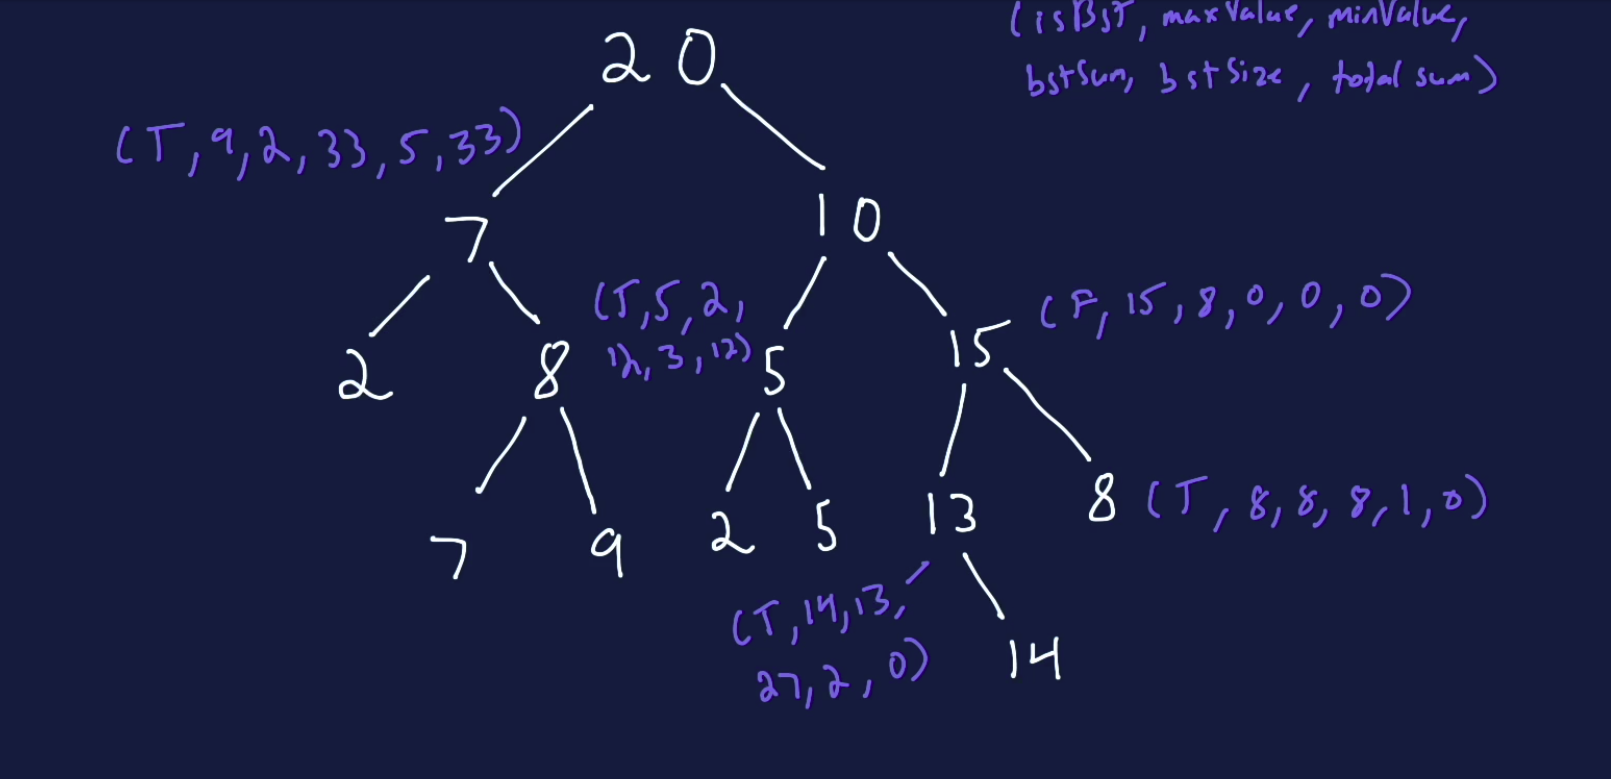 (isBST, maxValue, minValue,
bstSum, bstSize, total sum)
20
(T, 9, 2, 33, 5, 33)
7
10
(T, 5, 2,
12, 3, 12)
(F, 15, 8, 0, 0, 0)
2
8
5
15
7
9
2
5
13
8 (T, 8, 8, 8, 1, 0)
(T, 14, 13,
27, 2, 0)
14